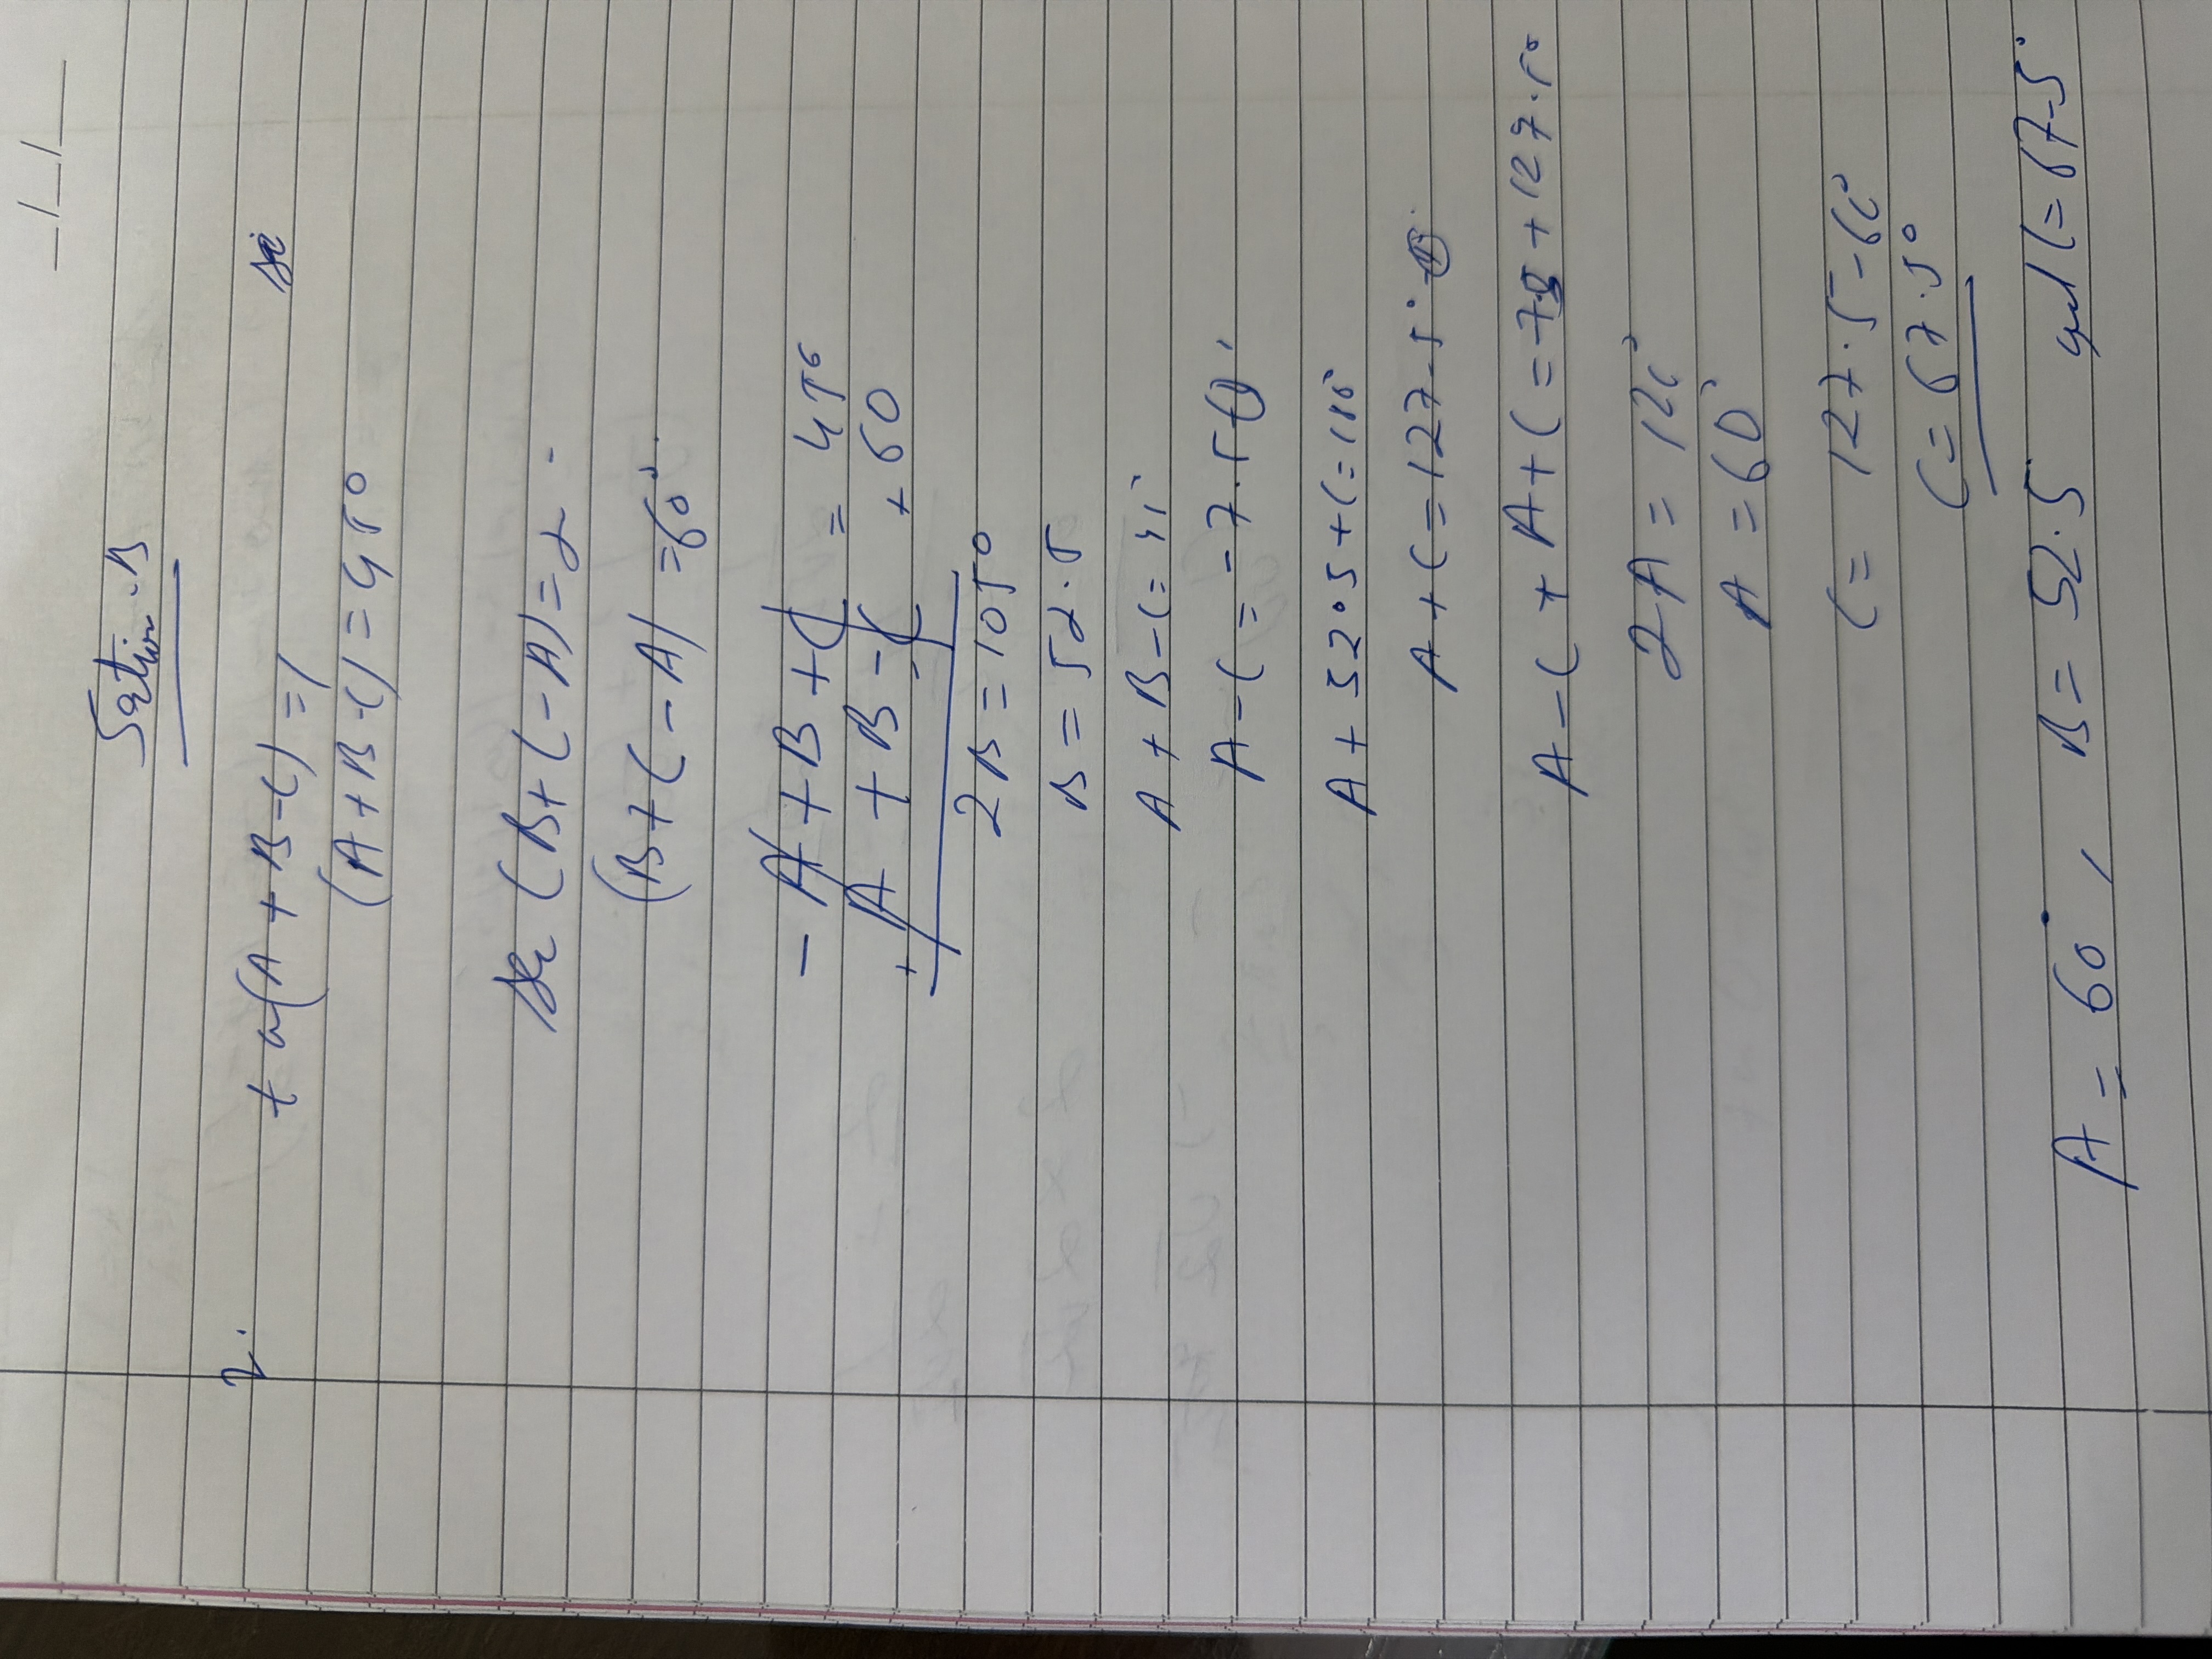 _/_/_
Section-B
2. tan(A+B-C)=1
(A+B-C)=45°
sec(B+C-A)=2
(B+C-A)=60°
-A+B+C = 45°
A+B-C +60
2B=105°
B=52.5
A+B-C=45°
A-C=-7.5 ①
A+52.5+C=180°
A+C=127.5° ②
A-C+A+C=-7.5+127.5°
2A=120°
A=60°
C=127.5-60°
C=67.5°
A=60°, B=52.5 and C=67.5°